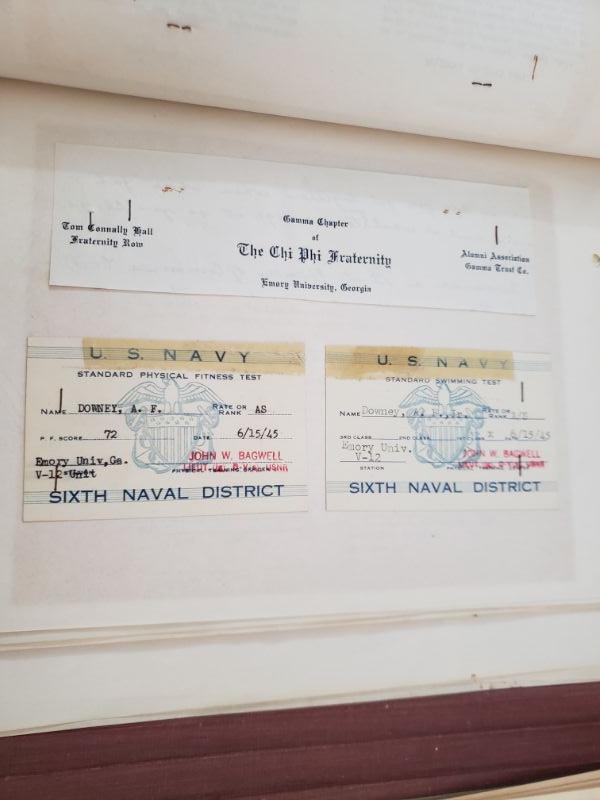 Gamma Chapter
of
The Chi Phi Fraternity
Emory University, Georgia
Tom Connally Hall
Fraternity Row
Alumni Association
Gamma Trust Co.
U. S. NAVY
STANDARD PHYSICAL FITNESS TEST
NAME DOWNEY, A. F. RATE OR RANK AS
P. F. SCORE 72 DATE 6/15/45
Emory Univ,Ga.
V-12-Unit
JOHN W. BAGWELL
SIXTH NAVAL DISTRICT
U. S. NAVY
STANDARD SWIMMING TEST
NAME Downey, RATE OR RANK
3RD CLASS 2ND CLASS x 6/15/45
Emory Univ.
V-12
STATION
JOHN W. BAGWELL
SIXTH NAVAL DISTRICT